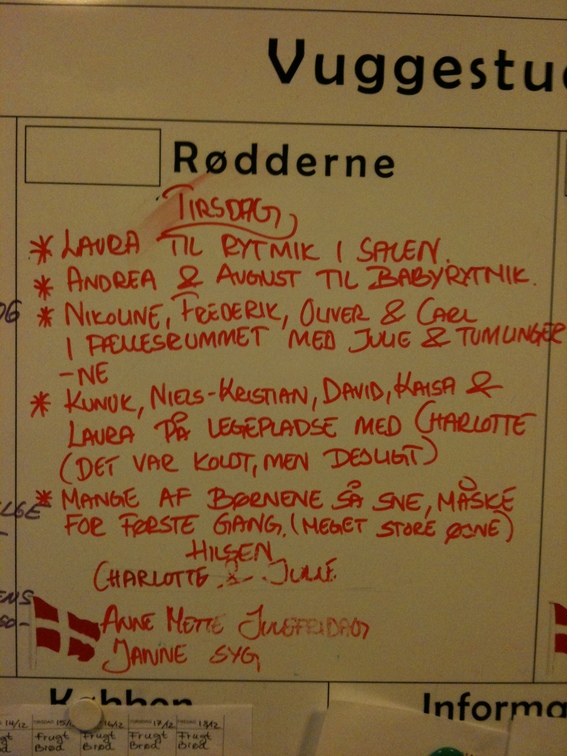 Vuggestu
Rødderne
TIRSDAG
* LAURA TIL RYTMIK I SALEN.
* ANDREA & AUGUST TIL BABYRYTMIK.
* NIKOLINE, FREDERIK, OLIVER & CARL
I FÆLLESRUMMET MED JULIE & TUMLINGER
-NE
* KUNUK, NIELS-KRISTIAN, DAVID, KAISA &
LAURA PÅ LEGEPLADSE MED CHARLOTTE
(DET VAR KOLDT, MEN DEJLIGT)
* MANGE AF BØRNENE SÅ SNE, MÅSKE
FOR FØRSTE GANG. (MEGET STORE ØJNE)
HILSEN
CHARLOTTE & JULIE.
ANNE METTE JULEFRIDAG
JANNE SYG
Informa
14/12 15/12 16/12 17/12 18/12
Frugt Frugt Frugt Frugt
Brød Brød Brød Brød